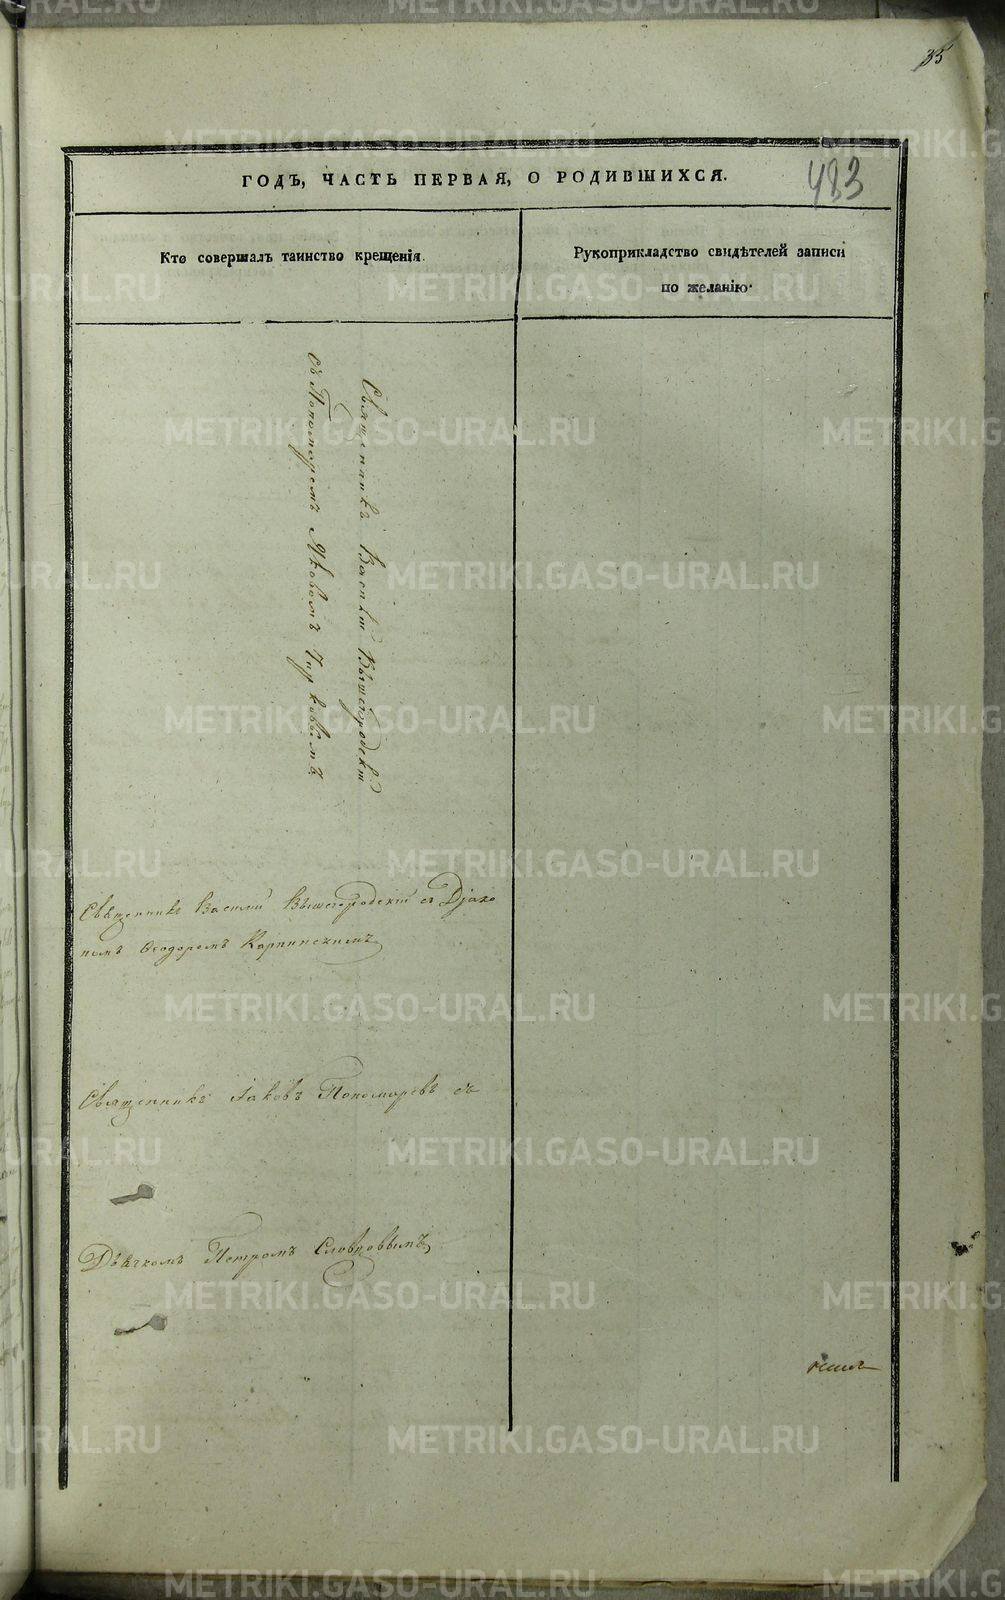 35
483
ГОДЪ, ЧАСТЬ ПЕРВАЯ, О РОДИВШИХСЯ.
Кто совершалъ таинство крещенія.
Рукоприкладство свидѣтелей записи
по желанію.
Священникъ Василій Вышегородскій
съ Пономаремъ Яковомъ Чирковымъ
Священникъ Василій Вышегородскій съ Діако
номъ Ѳеодоромъ Карпинскимъ
Священникъ Іаковъ Пономаревъ съ
Дьячкомъ Петромъ Словцовымъ
METRIKI.GASO-URAL.RU